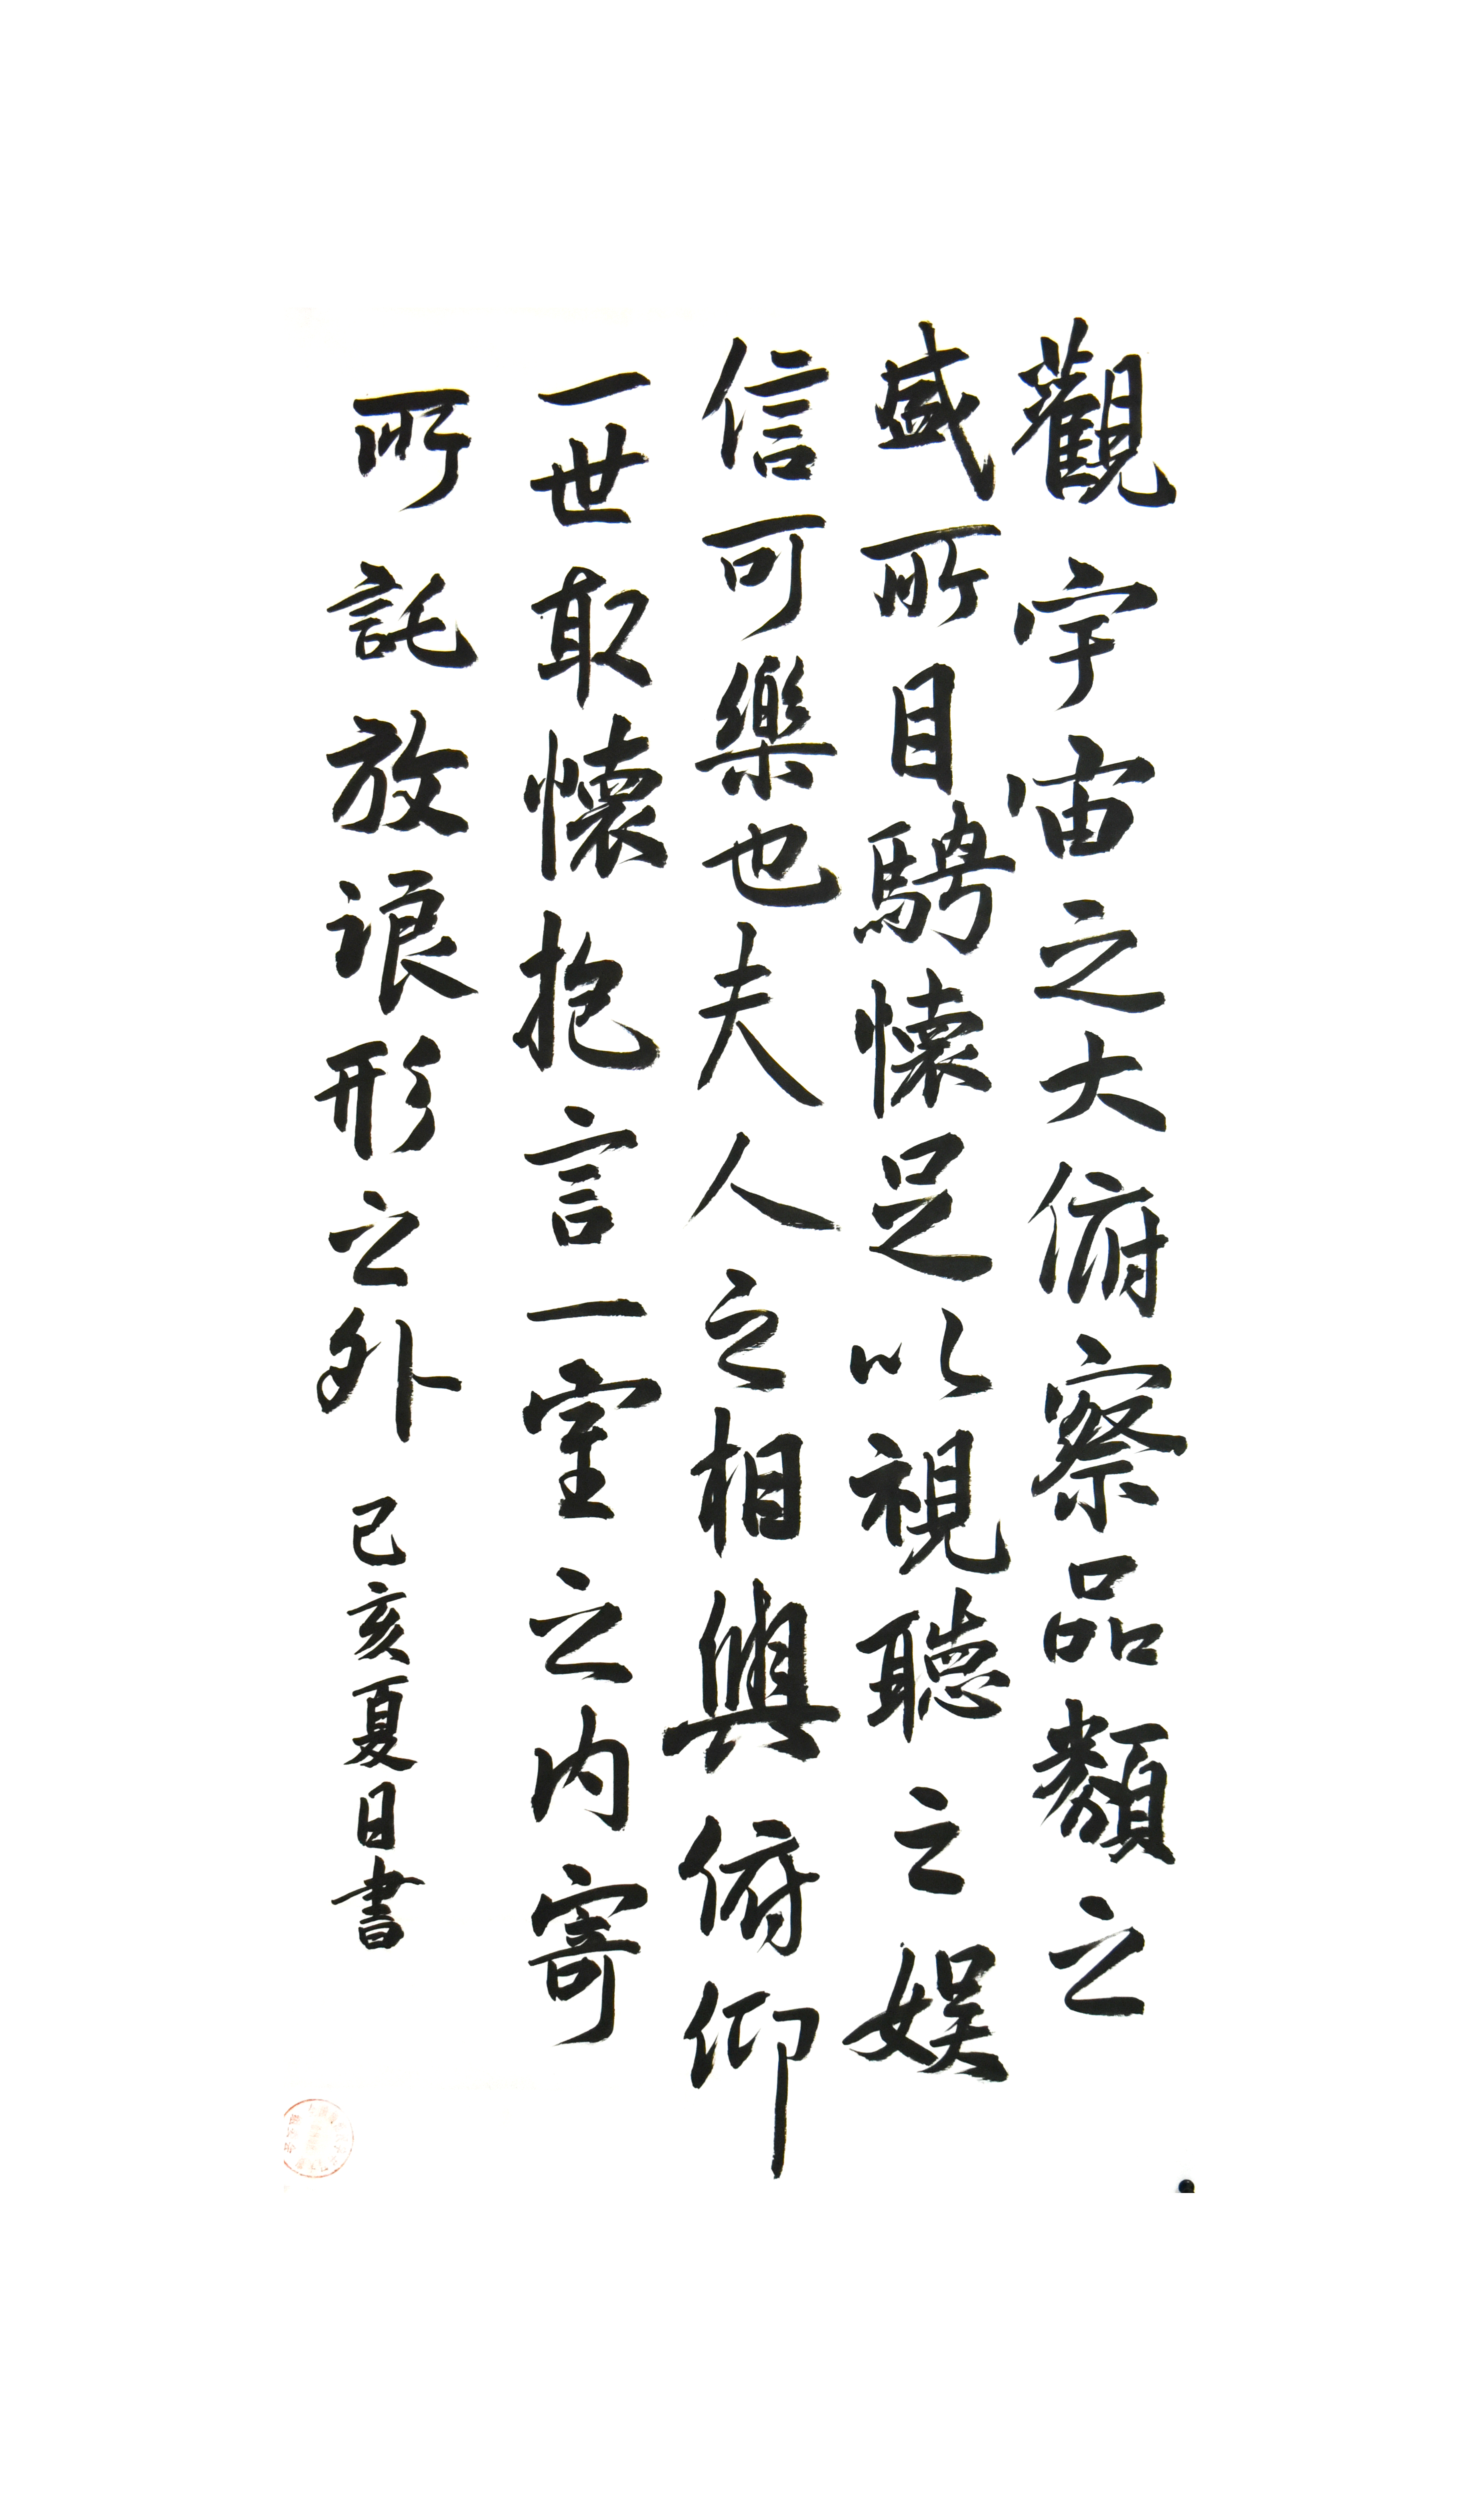 觀宇宙之大俯察品類之
盛所目騁懷足以視聽之娛
信可樂也夫人之相與俯仰
一世取懷抱言一室之內寄
所託放浪形之外
己亥夏日書